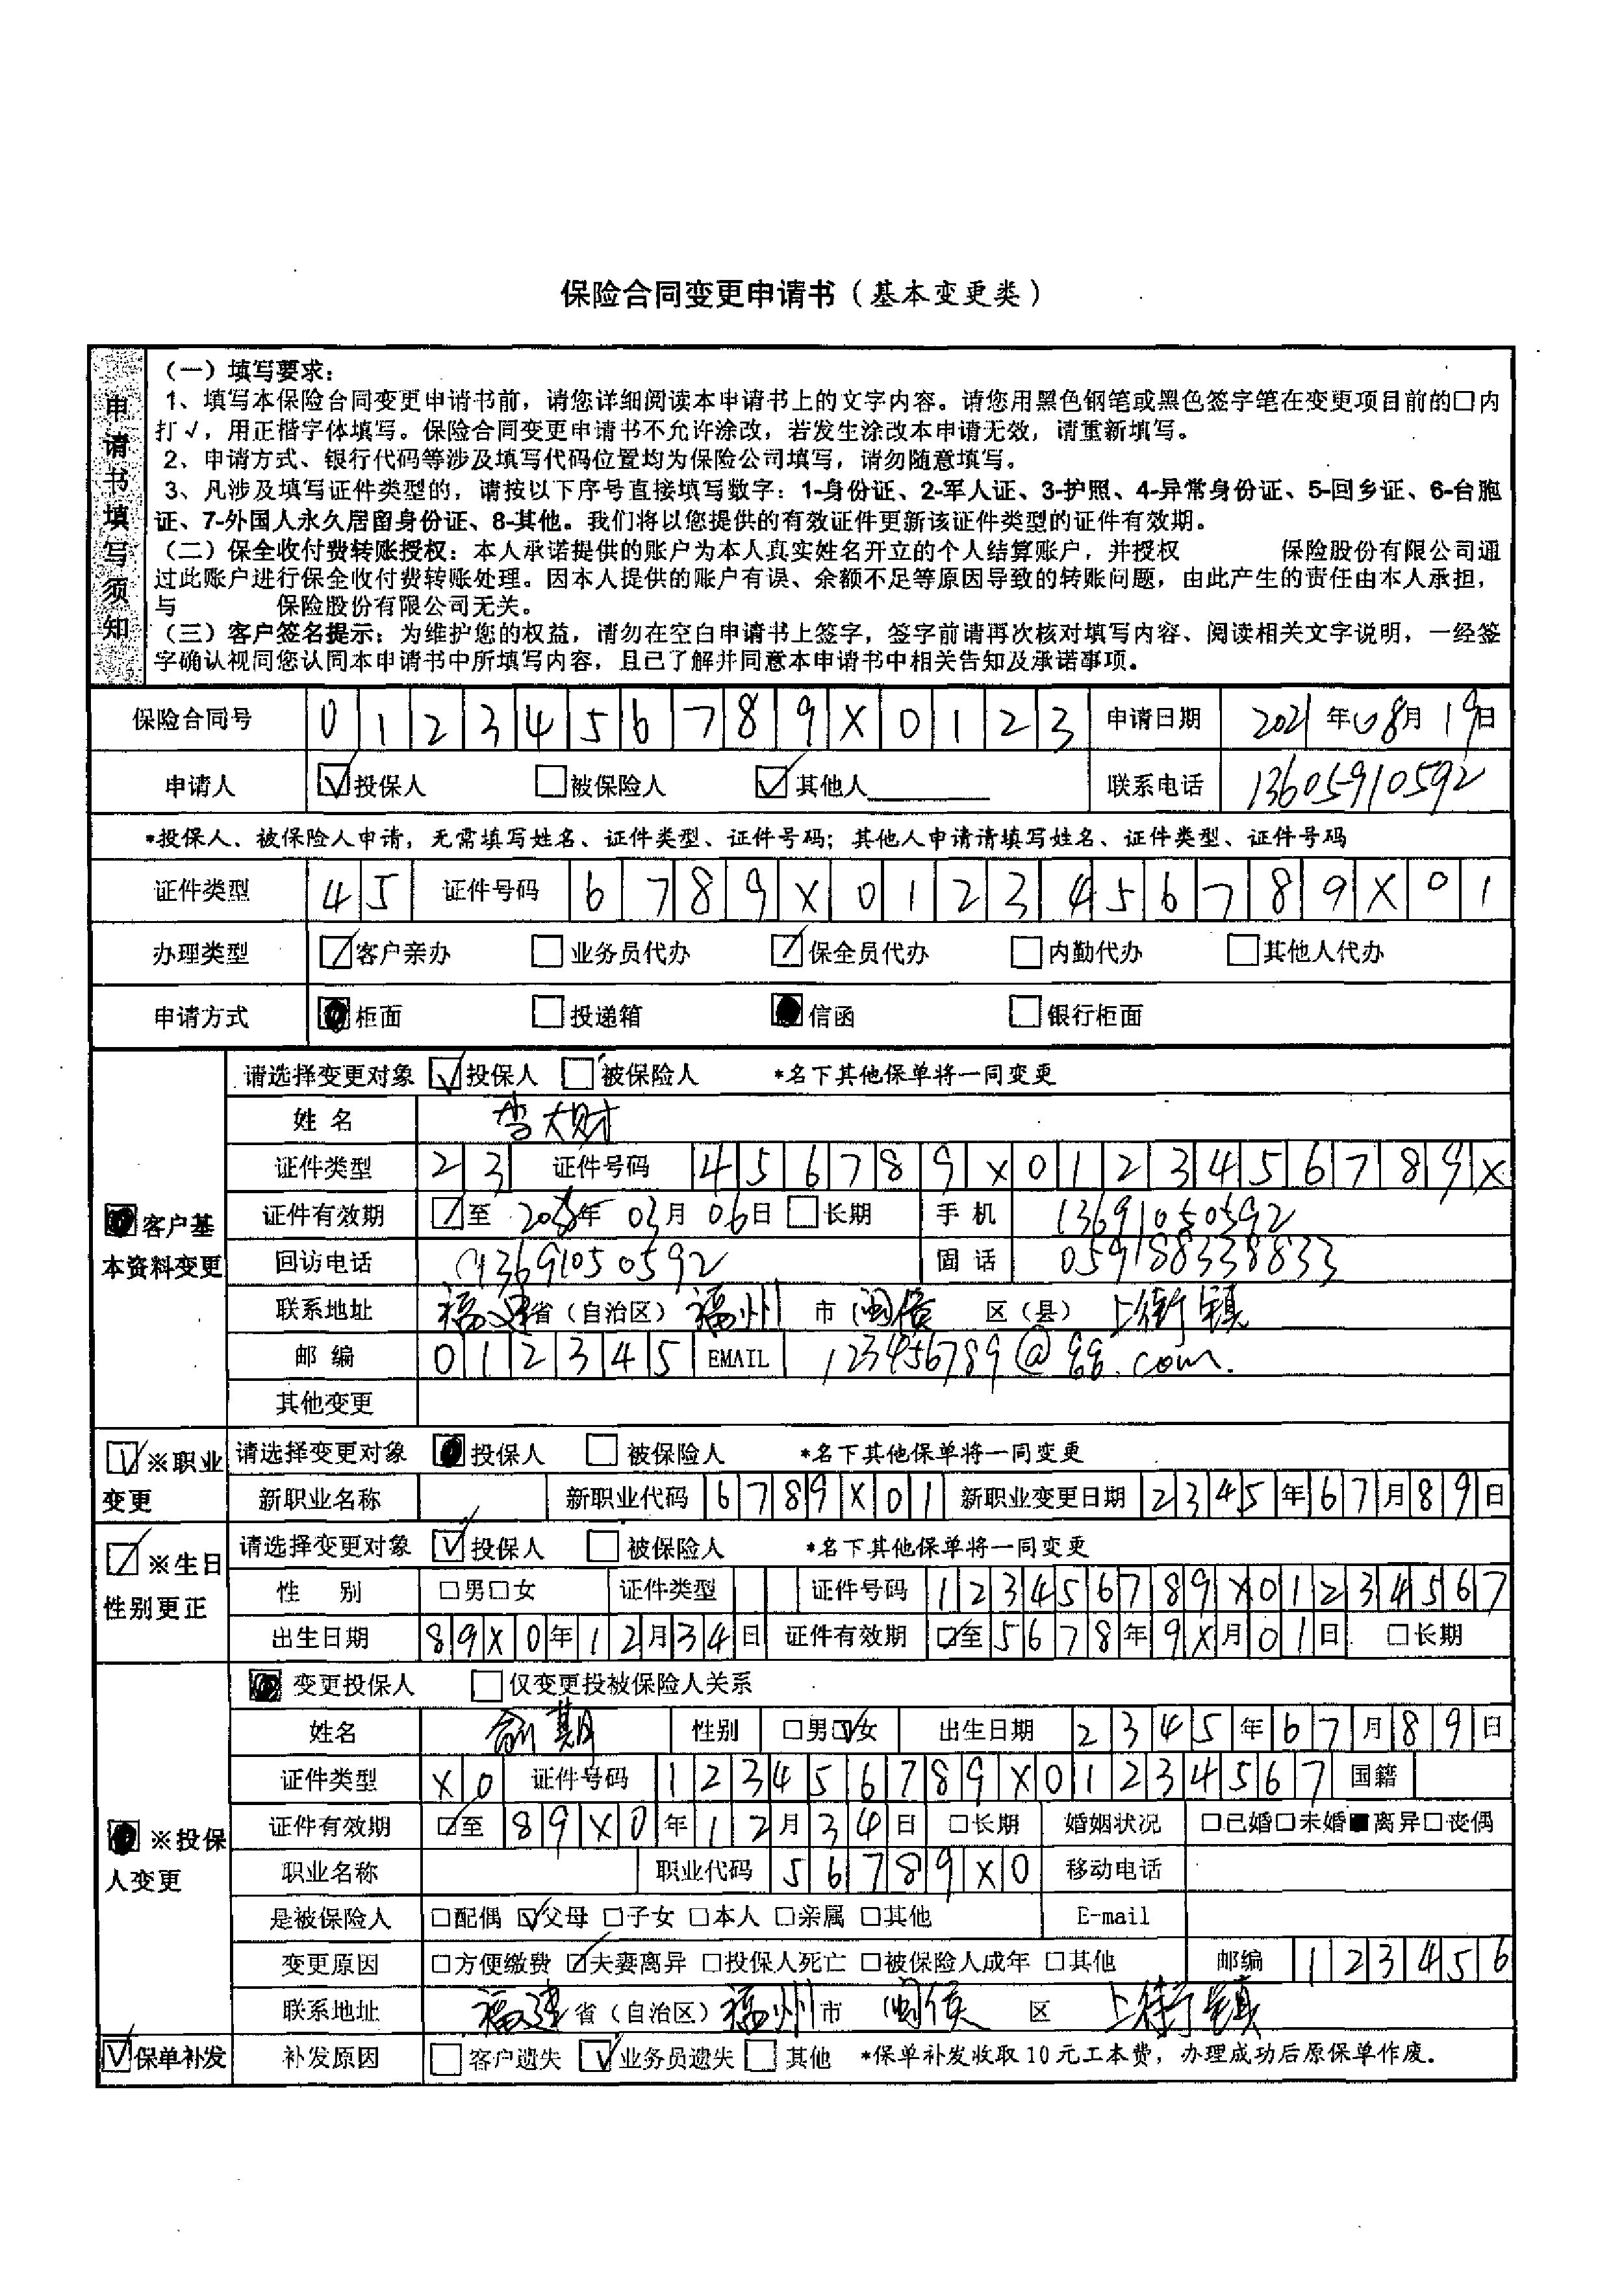 保险合同变更申请书（基本变更类）
申请书填写须知
（一）填写要求：
1、填写本保险合同变更申请书前，请您详细阅读本申请书上的文字内容。请您用黑色钢笔或黑色签字笔在变更项目前的□内
打√，用正楷字体填写。保险合同变更申请书不允许涂改，若发生涂改本申请无效，请重新填写。
2、申请方式、银行代码等涉及填写代码位置均为保险公司填写，请勿随意填写。
3、凡涉及填写证件类型的，请按以下序号直接填写数字：1-身份证、2-军人证、3-护照、4-异常身份证、5-回乡证、6-台胞
证、7-外国人永久居留身份证、8-其他。我们将以您提供的有效证件更新该证件类型的证件有效期。
（二）保全收付费转账授权：本人承诺提供的账户为本人真实姓名开立的个人结算账户，并授权 保险股份有限公司通
过此账户进行保全收付费转账处理。因本人提供的账户有误、余额不足等原因导致的转账问题，由此产生的责任由本人承担，
与 保险股份有限公司无关。
（三）客户签名提示：为维护您的权益，请勿在空白申请书上签字，签字前请再次核对填写内容、阅读相关文字说明，一经签
字确认视同您认同本申请书中所填写内容，且已了解并同意本申请书中相关告知及承诺事项。
保险合同号 0123456789X0123 申请日期 2021年08月19日
申请人 ☑投保人 □被保险人 ☑其他人 联系电话 13605910592
*投保人、被保险人申请，无需填写姓名、证件类型、证件号码；其他人申请请填写姓名、证件类型、证件号码
证件类型 45 证件号码 6789X0123456789X01
办理类型 ☑客户亲办 □业务员代办 ☑保全员代办 □内勤代办 □其他人代办
申请方式 ■柜面 □投递箱 ■信函 □银行柜面
■客户基本资料变更
请选择变更对象 ☑投保人 □被保险人 *名下其他保单将一同变更
姓名 李大财
证件类型 23 证件号码 456789X0123456789X
证件有效期 ☑至 年03月06日 □长期 手机 13691050592
回访电话 13691050592 固话 059188338833
联系地址 福建省（自治区）福州市闽侯区（县）上街镇
邮编 012345 EMAIL 123456789@qq.com.
其他变更
☑※职业变更
请选择变更对象 ■投保人 □被保险人 *名下其他保单将一同变更
新职业名称 新职业代码 6789X01 新职业变更日期 2345年67月89日
☑※生日性别更正
请选择变更对象 ☑投保人 □被保险人 *名下其他保单将一同变更
性别 □男□女 证件类型 证件号码 123456789X01234567
出生日期 89X0年12月34日 证件有效期 ☑至5678年9X月01日 □长期
■※投保人变更
■变更投保人 □仅变更投被保险人关系
姓名 俞期 性别 □男☑女 出生日期 2345年67月89日
证件类型 X0 证件号码 123456789X01234567 国籍
证件有效期 ☑至89X0年12月34日 □长期 婚姻状况 □已婚□未婚■离异□丧偶
职业名称 职业代码 56789X0 移动电话
是被保险人 □配偶 ☑父母 □子女 □本人 □亲属 □其他 E-mail
变更原因 □方便缴费 ☑夫妻离异 □投保人死亡 □被保险人成年 □其他 邮编 123456
联系地址 福建省（自治区）福州市 闽侯区 上街镇
☑保单补发 补发原因 □客户遗失 ☑业务员遗失 □其他 *保单补发收取10元工本费，办理成功后原保单作废。